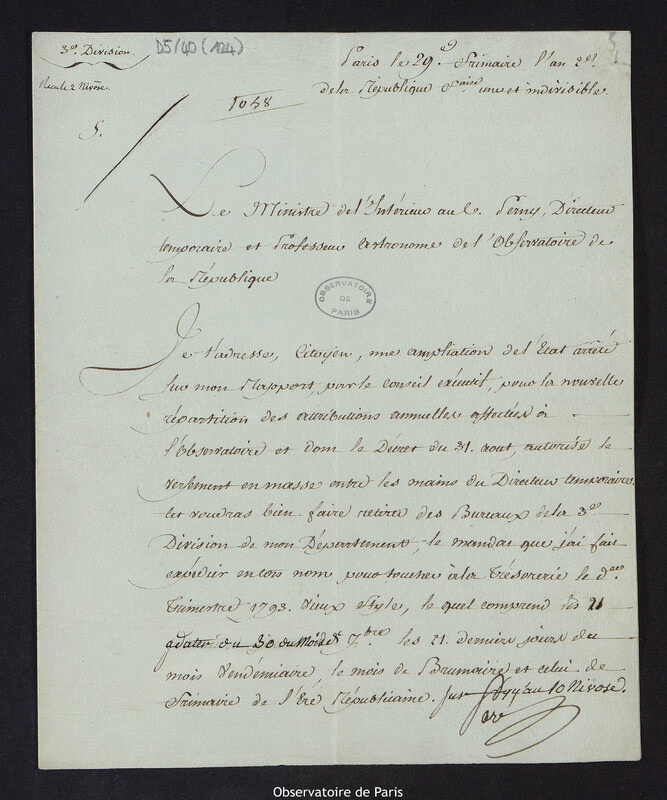 3e. Division
D5/40 (124)
Paris le 29 Frimaire l'an 2e.
Recu le 2 Nivôse
de la République f.aise une et indivisible.
1048
5.
Le Ministre de l'Intérieur au C. Perny, Directeur
temporaire et Professeur Astronome de l'Observatoire de
la République
OBSERVATOIRE
DE
PARIS
Je t'adresse, Citoyen, une ampliation de l'Etat arrêté
sur mon Rapport, par le Conseil exécutif, pour la nouvelle
répartition des attributions annuelles affectées à
l'Observatoire et dont le Décret du 31. aout, autorise le
versement en masse entre les mains du Directeur temporaire.
tu voudras bien faire retirer des Bureaux de la 3e.
Division de mon Département, le mandat que j'ai fait
expédier en ton nom pour toucher à la Trésorerie le d.er
Trimestre 1793. vieux style, le quel comprend les 21
adatter du 30 du Mois de 7.bre les 21. derniers jours du
mois Vendémiaire, le mois de Brumaire et celui de
Frimaire de l'Eré Républicaine. jusqu'au 10 Nivose.
Observatoire de Paris